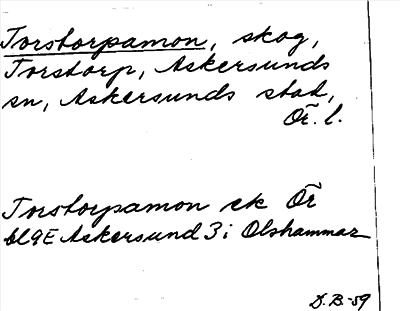 Torstorpamon, skog,
Torstorp, Askersunds
sn, Askersunds stad,
Ör. l.
Torstorpamon ek Ör
bl9E Askersund 3i Olshammar
D.B.-59